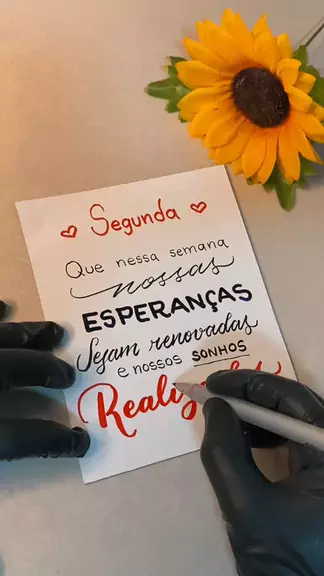 Segunda
Que nessa semana
nossas
ESPERANÇAS
Sejam renovadas
e nossos SONHOS
Realizados